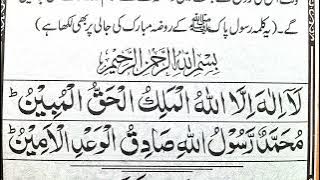 گے۔ (یہ کلمہ رسول پاک ﷺ کے روضہ مبارک کی جالی پر بھی لکھا ہے)
بِسْمِ اللّٰهِ الرَّحْمٰنِ الرَّحِيْمِ
لَآ اِلٰهَ اِلَّا اللّٰهُ الْمَلِكُ الْحَقُّ الْمُبِيْنُ ط
مُحَمَّدٌ رَّسُوْلُ اللّٰهِ صَادِقُ الْوَعْدِ الْاَمِيْنُ ط